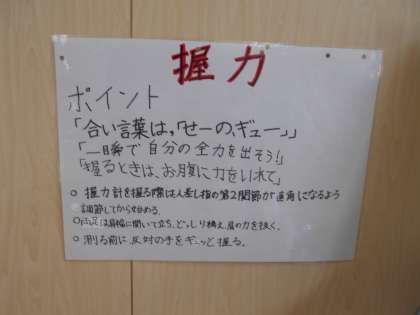 握力
ポイント
「合い言葉は,「せーの、ギュー」」
「一瞬で自分の全力を出そう!」
「握るときは、お腹に力をいれて」
○ 握力計を握る際は人差し指の第2関節が直角になるよう
調節してから始める。
○両足は肩幅に開いて立ち、どっしり構え、肩の力を抜く。
○ 測る前に反対の手をギューッと握る。